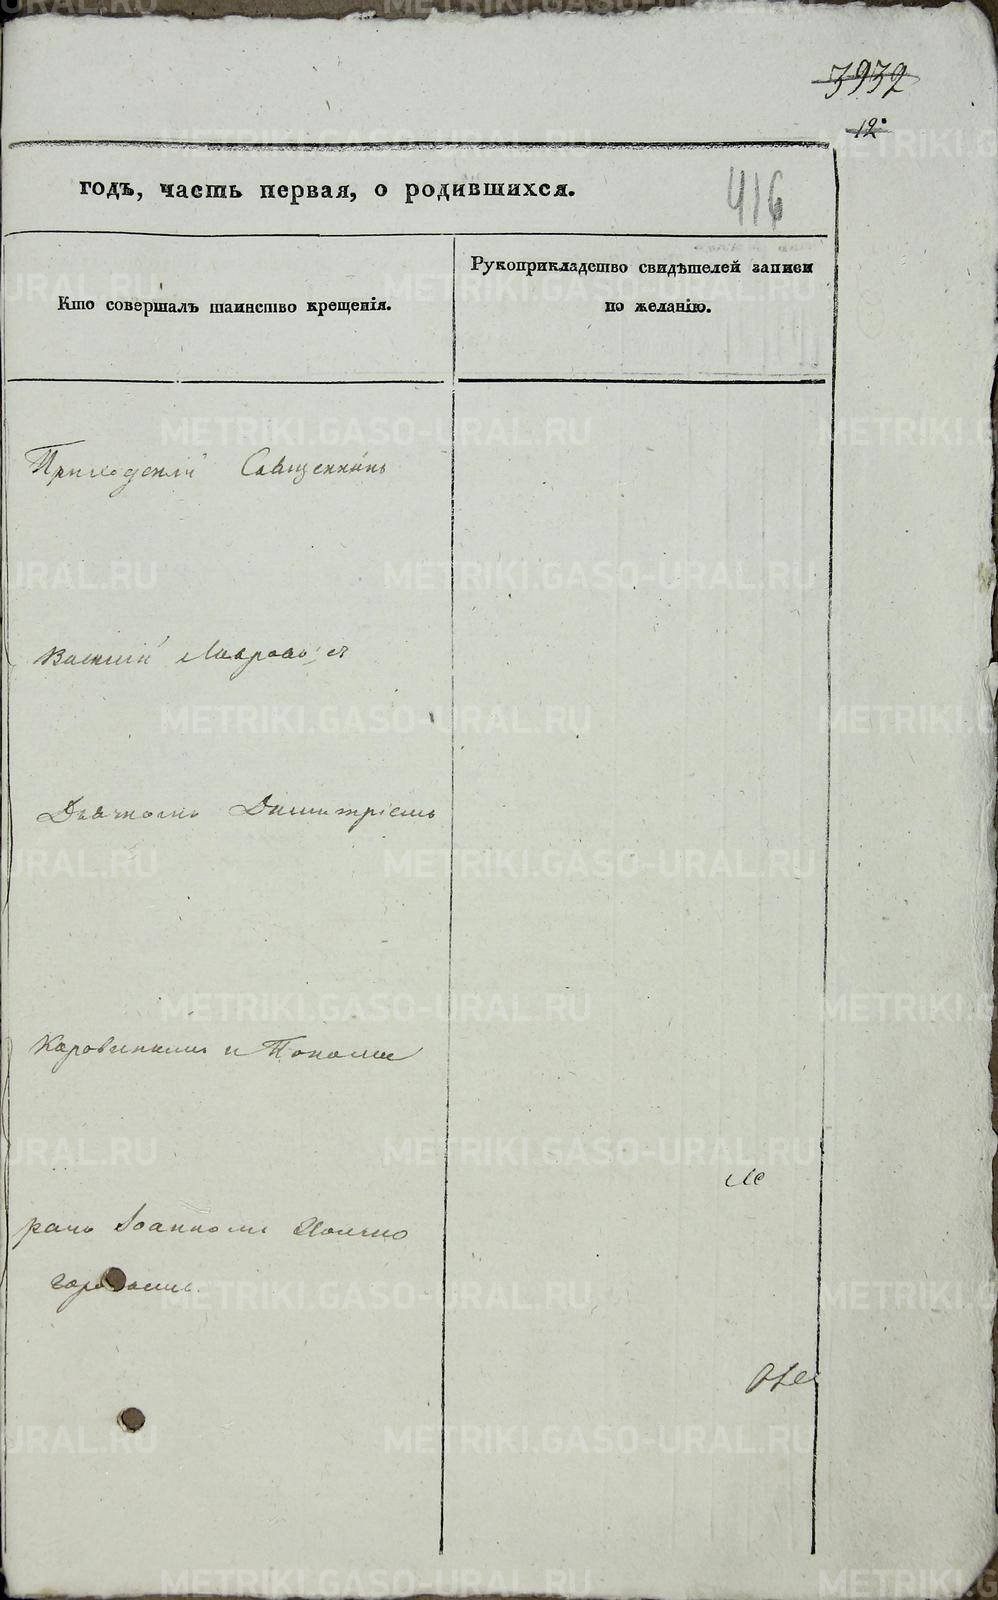 3932
12.
годъ, часть первая, о родившихся.
416
Кто совершалъ таинство крещенія.
Рукоприкладство свидѣтелей записи
по желанію.
Приходскій Священникъ
Василій Лавровъ съ
Дьячкомъ Димитріемъ
и Поном
рань Іоанномъ
METRIKI.GASO-URAL.RU